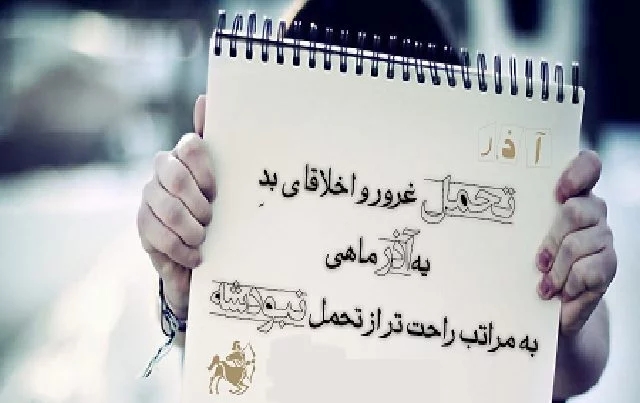 آذر
تحمل غرور و اخلاقای بدِ
یه آذر ماهی
به مراتب راحت تر از تحمل نبودشه